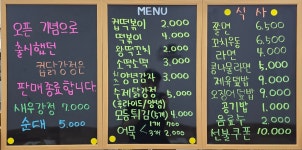 오픈 개념으로
출시했던
컵닭강정은
판매종료합니다
새우강정 7.000
순대 5.000
MENU
컵떡볶이 2.000
떡볶이 4.000
왕떡꼬치 2.000
소떡소떡 3.000
수제닭강정 5.000
(후라이드/양념)
모듬튀김(5개) 4.000
어묵 1개 700
3개 2.000
식사
쫄면 6.500
라면 4.000
콩나물라면 5.000
제육덮밥 9.000
오징어덮밥 9.000
공기밥 1.000
음료수 2.000
선불쿠폰 10.000